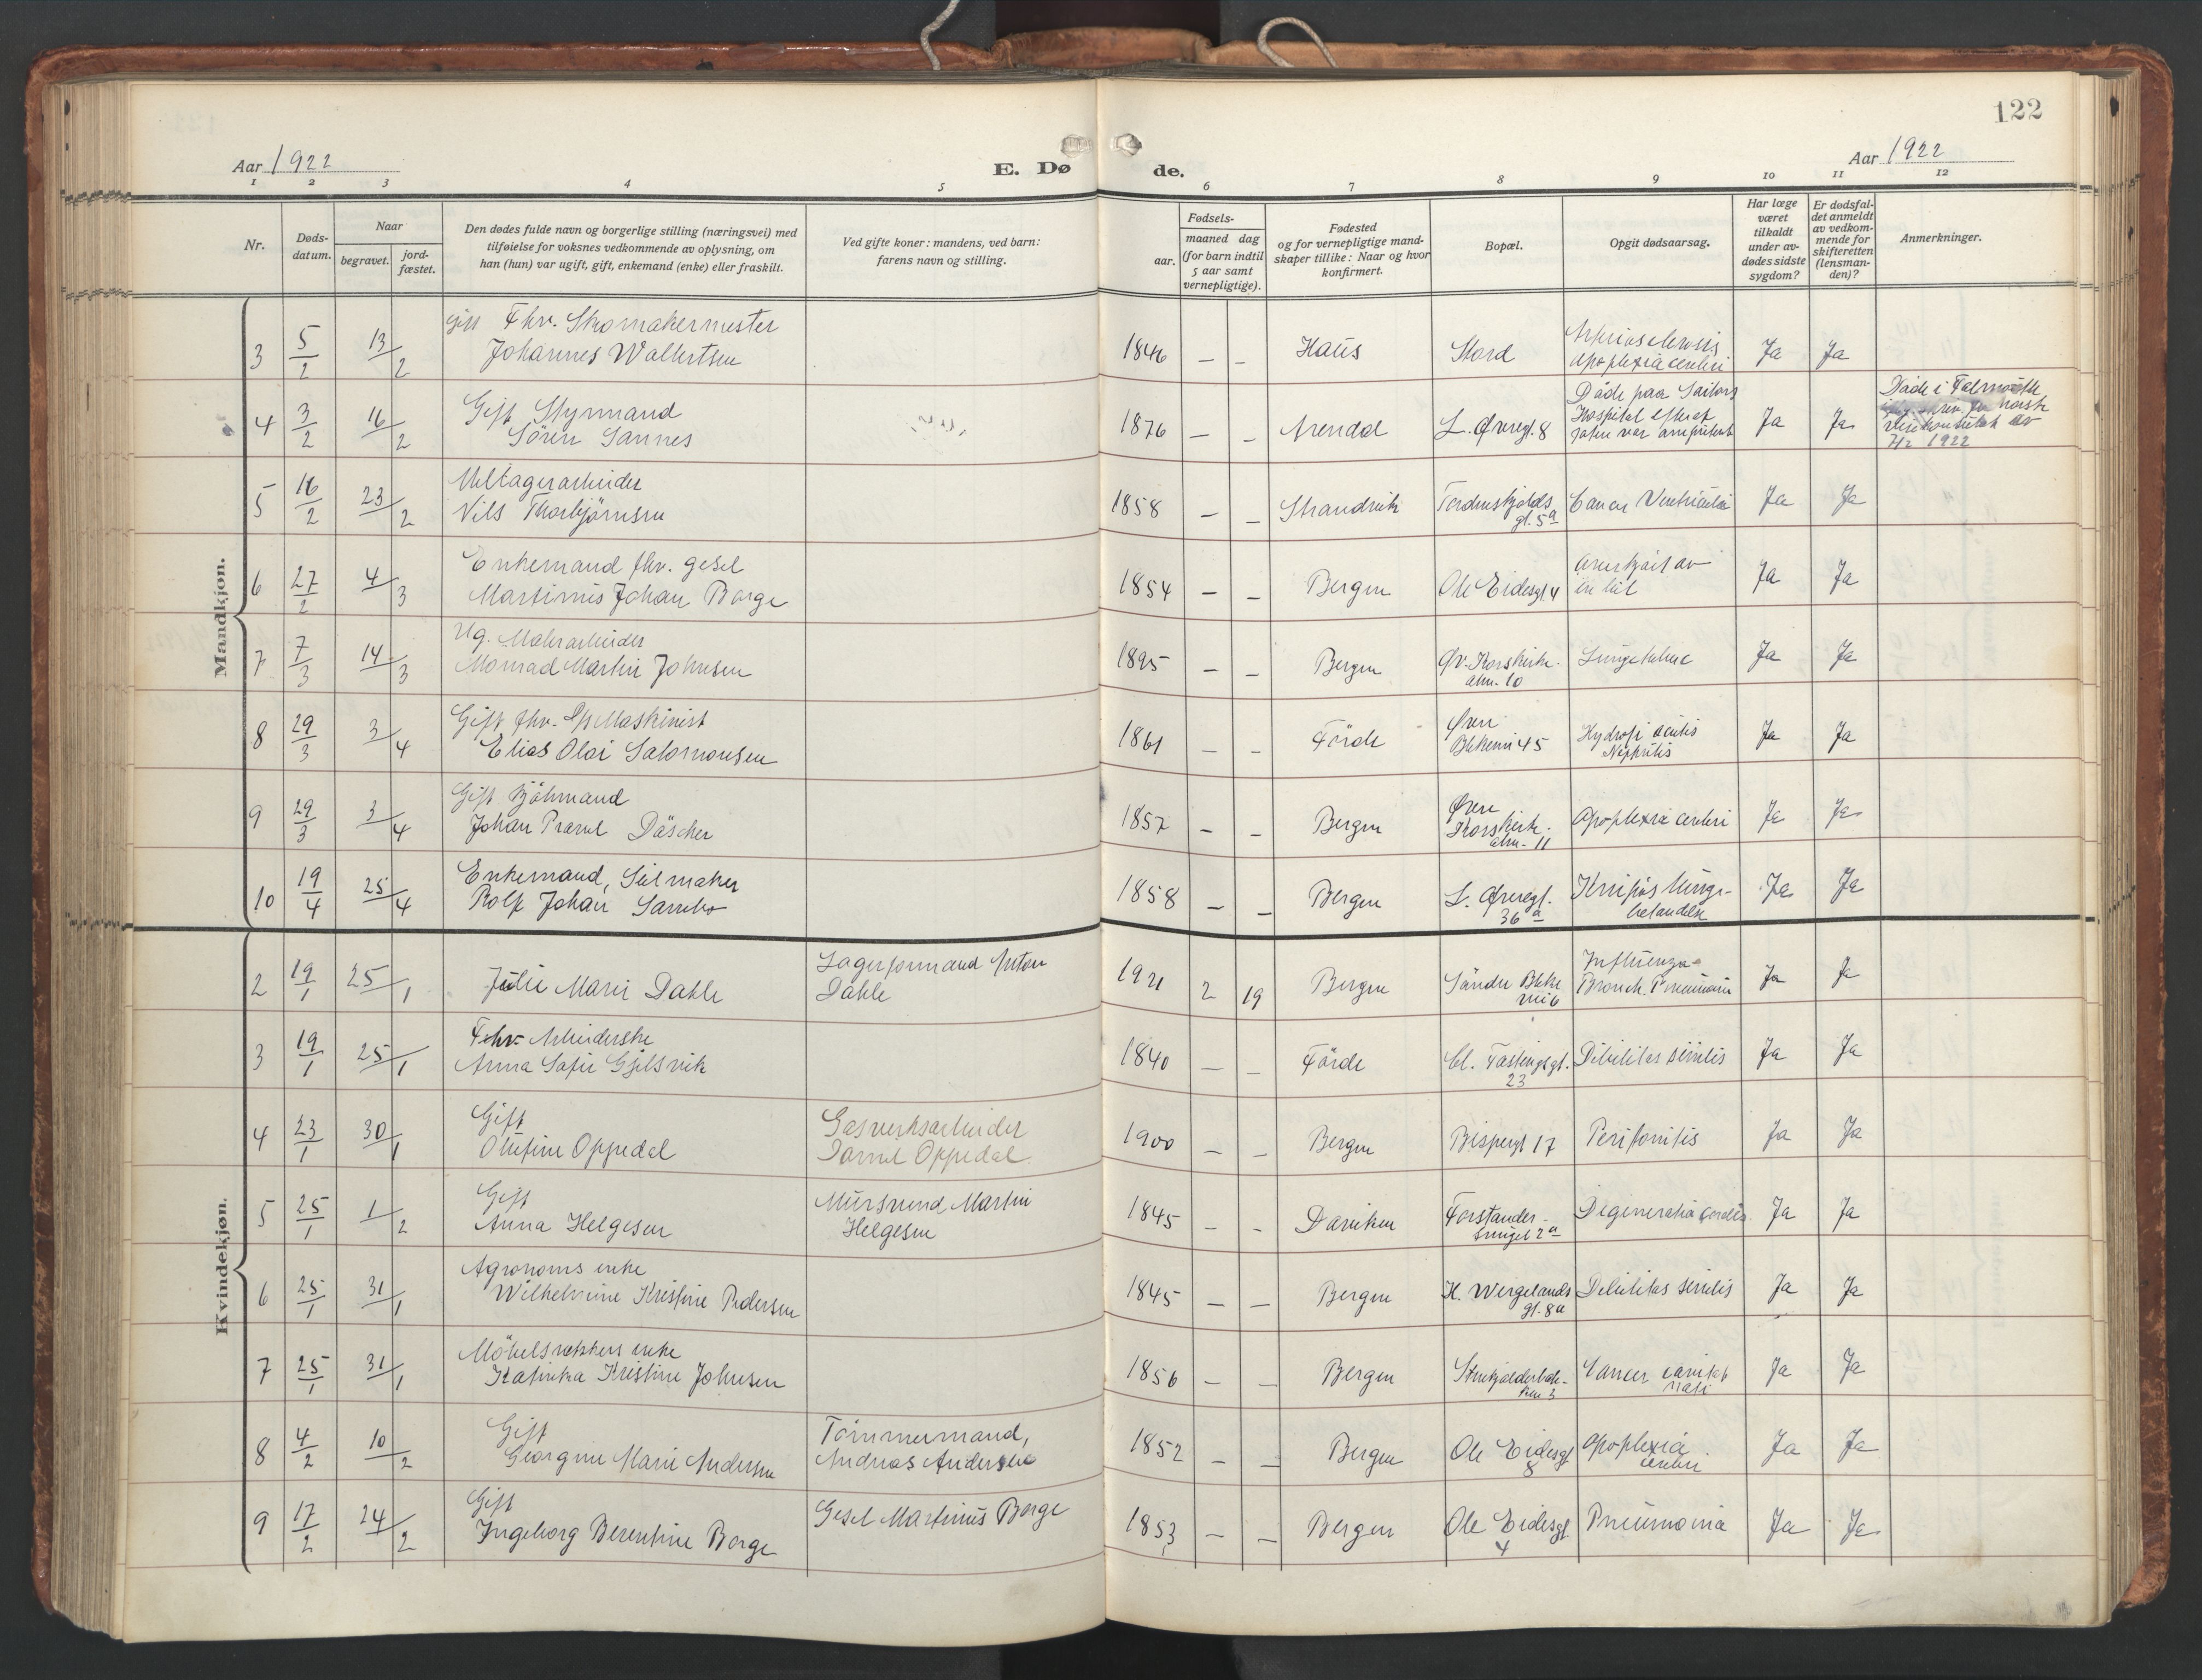 122
Aar 1922
E. Dø
de.
Aar 1922
1 2 3 4 5 6 7 8 9 10 11 12
Nr.
Døds-
datum.
Naar
begravet.
jord-
fæstet.
Den dødes fulde navn og borgerlige stilling (næringsvei) med
tilføielse for voksnes vedkommende av oplysning, om
han (hun) var ugift, gift, enkemand (enke) eller fraskilt.
Ved gifte koner: mandens, ved barn:
farens navn og stilling.
Fødsels-
aar.
maaned dag
(for barn indtil
5 aar samt
vernepligtige).
Fødested
og for vernepligtige mand-
skaper tillike: Naar og hvor
konfirmert.
Bopæl.
Opgit dødsaarsag.
Har læge
været
tilkaldt
under av-
dødes sidste
sygdom?
Er dødsfal-
det anmeldt
av vedkom-
mende for
skifteretten
(lensman-
den)?
Anmerkninger.
Mandkjøn.
3 5/2 13/2 Gift Fhv. Skomakermester
Johannes Walbertsen
1846 – – Haus Stord
apoplexia cerebri Ja Ja
4 3/2 16/2 Gift Styrmand
Sören Sannes
1876 – – Arendal L. Øvregt. 8
Döde paa Sailors
Hospital efterat
foten var amputert Ja Ja
Döde i Falmouth
norsk
visekonsulat av
7/2 1922
5 16/2 23/2
Nils Thorbjörnsen
1858 – – Strandvik Tordenskjolds
gt. 5a
Cancer Ventriculi Ja Ja
6 27/2 4/3 Enkemand fhv. gesel
Martinus Johan Borge
1854 – – Bergen Ole Eidesgt. 4
overkjört av
en bil Ja Ja
7 7/3 14/3 Ug. Malerarbeider
Monrad Martin Johnsen
1895 – – Bergen Øv. Korskirke-
alm. 10
Lungetuberc Ja Ja
8 29/3 3/4 Gift fhv. D/s Maskinist
Elias Olai Salomonsen
1861 – – Förde Øvre
Blekevei 45
Nephritis Ja Ja
9 29/3 3/4 Gift Sjömand
Johan Däscher
1857 – – Bergen Øvre
Korskirke-
alm. 11
Apoplexia cerebri Ja Ja
10 19/4 25/4 Enkemand, Seilmaker
Rolf Johan
1858 – – Bergen L. Øvregt.
36a
Krupös lunge-
betændelse Ja Ja
Kvindekjøn.
2 19/1 25/1 Julie Marie Dahle
Lagerformand Anton
Dahle
1921 2 19 Bergen Söndre Bleke
vei 6
Influenza-
Bronch. Pneumoni Ja Ja
3 19/1 25/1 Fhv. Arbeiderske
Anna Sofie Gjelsvik
1840 – – Förde Cl. Fastingsgt.
23
Debilitas senilis Ja Ja
4 23/1 30/1 Gift
Olufine Oppedal
Gasverksarbeider
Daniel Oppedal
1900 – – Bergen Bispengt 17
Peritonitis Ja Ja
5 25/1 1/2 Gift
Anna Helgesen
Mursvend Martin
Helgesen
1845 – – Daviken Forstander-
smuget 2a
Degeneratio cordis Ja Ja
6 25/1 31/1 Agronoms enke
Wilhelmine Kristine Pedersen
1845 – – Bergen H. Wergelands
gt. 8a
Debilitas senilis Ja Ja
7 25/1 31/1 Möbelsnekkers enke
Katinka Kristine Johnsen
1856 – – Bergen Steinkjelderbak-
ken 3
Cancer
nasi Ja Ja
8 4/2 10/2 Gift
Georgine Marie Andersen
Tömmermand,
Andreas Andersen
1852 – – Bergen Ole Eidesgt
8
Apoplexia
cerebri Ja Ja
9 17/2 24/2 Gift
Ingeborg Berentine Borge
Gesel Martinus Borge
1853 – – Bergen Ole Eidesgt
4
Pneumonia Ja Ja